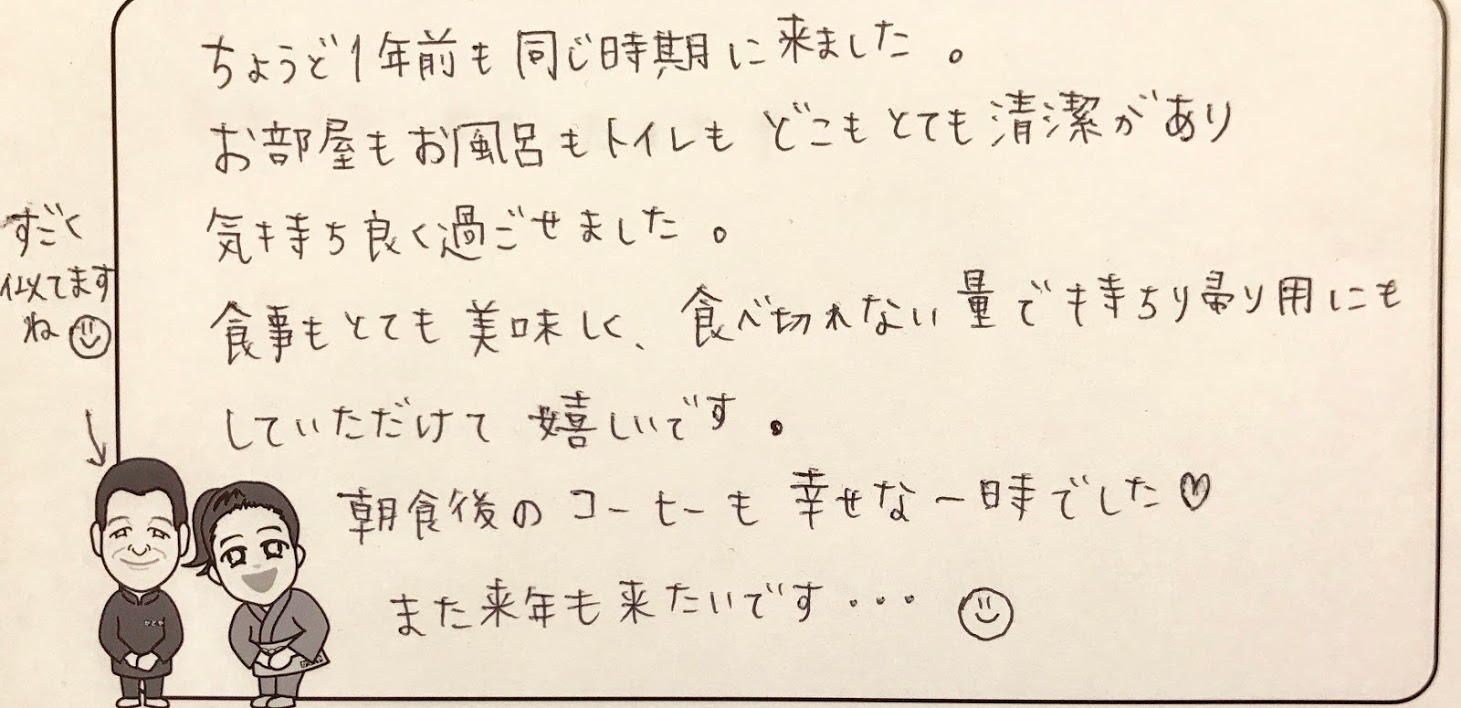 ちょうど1年前も同じ時期に来ました。
お部屋もお風呂もトイレもどこもとても清潔があり
気持ち良く過ごせました。
食事もとても美味しく、食べ切れない量でも持ちり帰り用にも
していただけて嬉しいです。
朝食後のコーヒーも幸せな一時でした♡
また来年も来たいです・・・☺
すごく
似てます
ね☺
↓